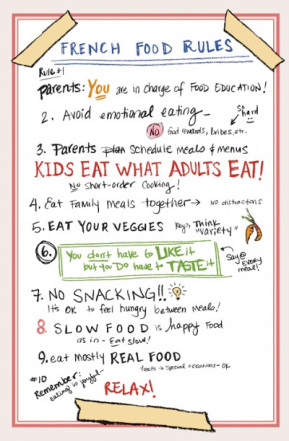 FRENCH FOOD RULES
Rule #1
Parents: You are in charge of FOOD EDUCATION!
2. Avoid emotional eating
hard
No food rewards, bribes, etc.
3. Parents plan Schedule meals & menus
KIDS EAT WHAT ADULTS EAT!
No short-order cooking!
4. Eat Family meals together → No distractions
5. EAT YOUR VEGGIES Key: Think "Variety"
6. You don't have to LIKE it
but you DO have to TASTE it
Say @ EVERY meal!
7. NO SNACKING!!
It's OK to feel hungry between meals!
8. SLOW FOOD is happy Food
as in - Eat slow!
9. eat mostly REAL FOOD
treats → special occasions - OK
#10
Remember:
eating is joyful -
RELAX!